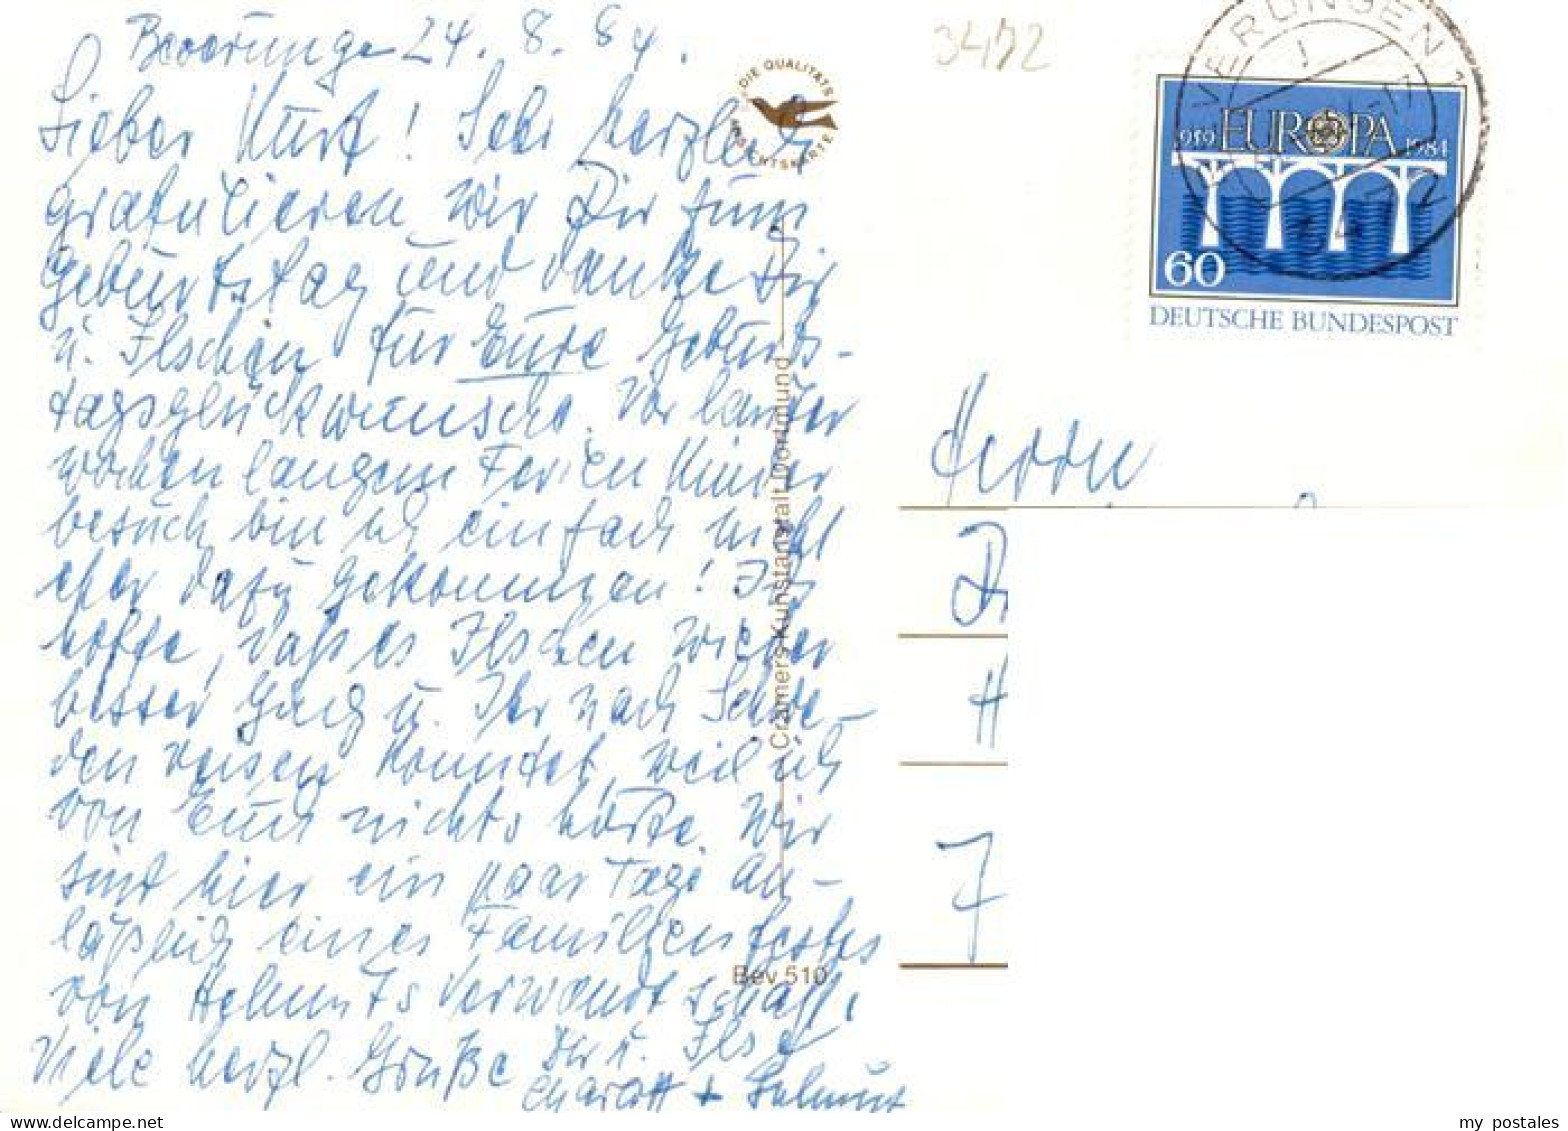 Beverungen 24. 8. 84.
Lieber Kurt! Sehr herzlich
gratulieren wir Dir zum
Geburtstag und danke Dir
u. Ilschen für Eure Geburts-
tagsglückwünsche. Vor lauter
wochenlangem Ferien Kinder
besuch bin ich einfach nicht
eher dazu gekommen! Ich
hoffe, daß es Ilschen wieder
besser ging u. Ihr nach Schwe-
den reisen konntet, weil ich
von Euch nichts hörte. Wir
sind hier ein paar Tage an-
läßlich eines Familienfestes
von Helmuts Verwandtschaft.
Viele herzl. Grüße Dir u. Ilse
Charlott + Helmut
DIE QUALITÄTS
ANSICHTSKARTE
Cramers Kunstanstalt Dortmund
Bev 510
3472
VERUNGEN 1
1959 EUROPA 1984
60
DEUTSCHE BUNDESPOST
Herrn
D
H
7
www.delcampe.net
my_postales